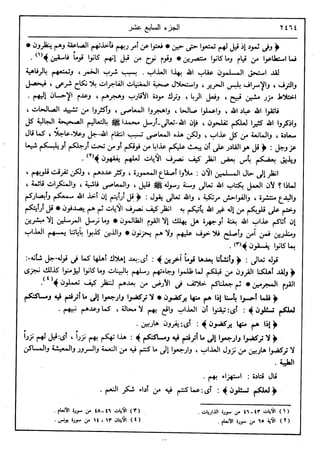 ٢٤٦٤ الجزء السابع عشر
﴿ وفى ثمود إذ قيل لهم تمتعوا حتى حين * فعتوا عن أمر ربهم فأخذتهم الصاعقة وهم ينظرون *
فما استطاعوا من قيام وما كانوا منتصرين * وقوم نوح من قبل إنهم كانوا قوماً فاسقين ﴾(١).
لقد استحق المسلمون عقاب الله بهذا العذاب. بسبب شرب الخمر، وتمتعهم بالرفاهية
والترف، والإسراف بلبس الحرير، واستحلال صحبة المغنيات الفاجرات بلا نكاح شرعى، فيحصل
اختلاط مزر مشين قبيح، وفعل الربا، وترك مودة الأقارب وهجرهم، وعدم الإحسان إليهم.
فاتقوا الله عباد الله، واعملوا صالحا، واهجروا المعاصى، وأكثروا من تشييد الصالحات،
واذكروا الله كثيرا لعلكم تفلحون، فإن الله تعالى أرسل محمدا ﷺ بالتعاليم الصحيحة الجالبة كل
سعادة، والمانعة من كل عذاب، ولكن هذه المعاصى تسبب انتقام الله جل وعلا عاجلاً، كما قال
عز وجل: ﴿ قل هو القادر على أن يبعث عليكم عذابا من فوقكم أو من تحت أرجلكم أو يلبسكم شيعا
ويذيق بعضكم بأس بعض انظر كيف نصرف الآيات لعلهم يفقهون ﴾(٢).
انظر إلى حال المسلمين الآن: ملأوا أصقاع المعمورة، وكثر عددهم، ولكن تفرقت قلوبهم،
لماذا ؟ لأن العمل بكتاب الله تعالى وسنة رسوله ﷺ قليل، والمعاصى فاشية، والمنكرات قائمة،
والبدع منتشرة، والفواحش مرتكبة، والله تعالى يقول: ﴿ قل أرأيتم إن أخذ الله سمعكم وأبصاركم
وختم على قلوبكم من إله غير الله يأتيكم به انظر كيف نصرف الآيات ثم هم يصدفون * قل أرأيتكم
إن أتاكم عذاب الله بغتة أو جهرة هل يهلك إلا القوم الظالمون * وما نرسل المرسلين إلا مبشرين
ومنذرين فمن آمن وأصلح فلا خوف عليهم ولا هم يحزنون * والذين كذبوا بآياتنا يمسهم العذاب
بما كانوا يفسقون ﴾(٣).
قوله تعالى: ﴿ وأنشأنا بعدها قوماً آخرين ﴾: أى: بعد إهلاك أهلها كما فى قوله جل شأنه:
﴿ ولقد أهلكنا القرون من قبلكم لما ظلموا وجاءتهم رسلهم بالبينات وما كانوا ليؤمنوا كذلك نجزى
القوم المجرمين * ثم جعلناكم خلائف فى الأرض من بعدهم لننظر كيف تعملون ﴾(٤).
﴿ فلما أحسوا بأسنا إذا هم منها يركضون * لا تركضوا وارجعوا إلى ما أترفتم فيه ومساكنكم
لعلكم تسئلون ﴾: أى: تيقنوا أن العذاب واقع بهم لا محالة، كما وعدهم نبيهم.
﴿ إذا هم منها يركضون ﴾: أى: يفرون هاربين.
﴿ لا تركضوا وارجعوا إلى ما أترفتم فيه ومساكنكم ﴾: هذا تهكم بهم نزراً، أى: قيل لهم نزراً
لا تركضوا هاربين من نزول العذاب، وارجعوا إلى ما كنتم فيه من النعمة والسرور والمعيشة والمساكن
الطيبة.
قال قتادة: استهزاء بهم.
﴿ لعلكم تسئلون ﴾: أى: عما كنتم فيه من أداء شكر النعم.
(١) الآيات ٤٣ - ٤٦ من سورة الذاريات. (٣) الآيات ٤٦ - ٤٨ من سورة الأنعام.
(٢) الآية ٦٥ من سورة الأنعام. (٤) الآيتان ١٣، ١٤ من سورة يونس.